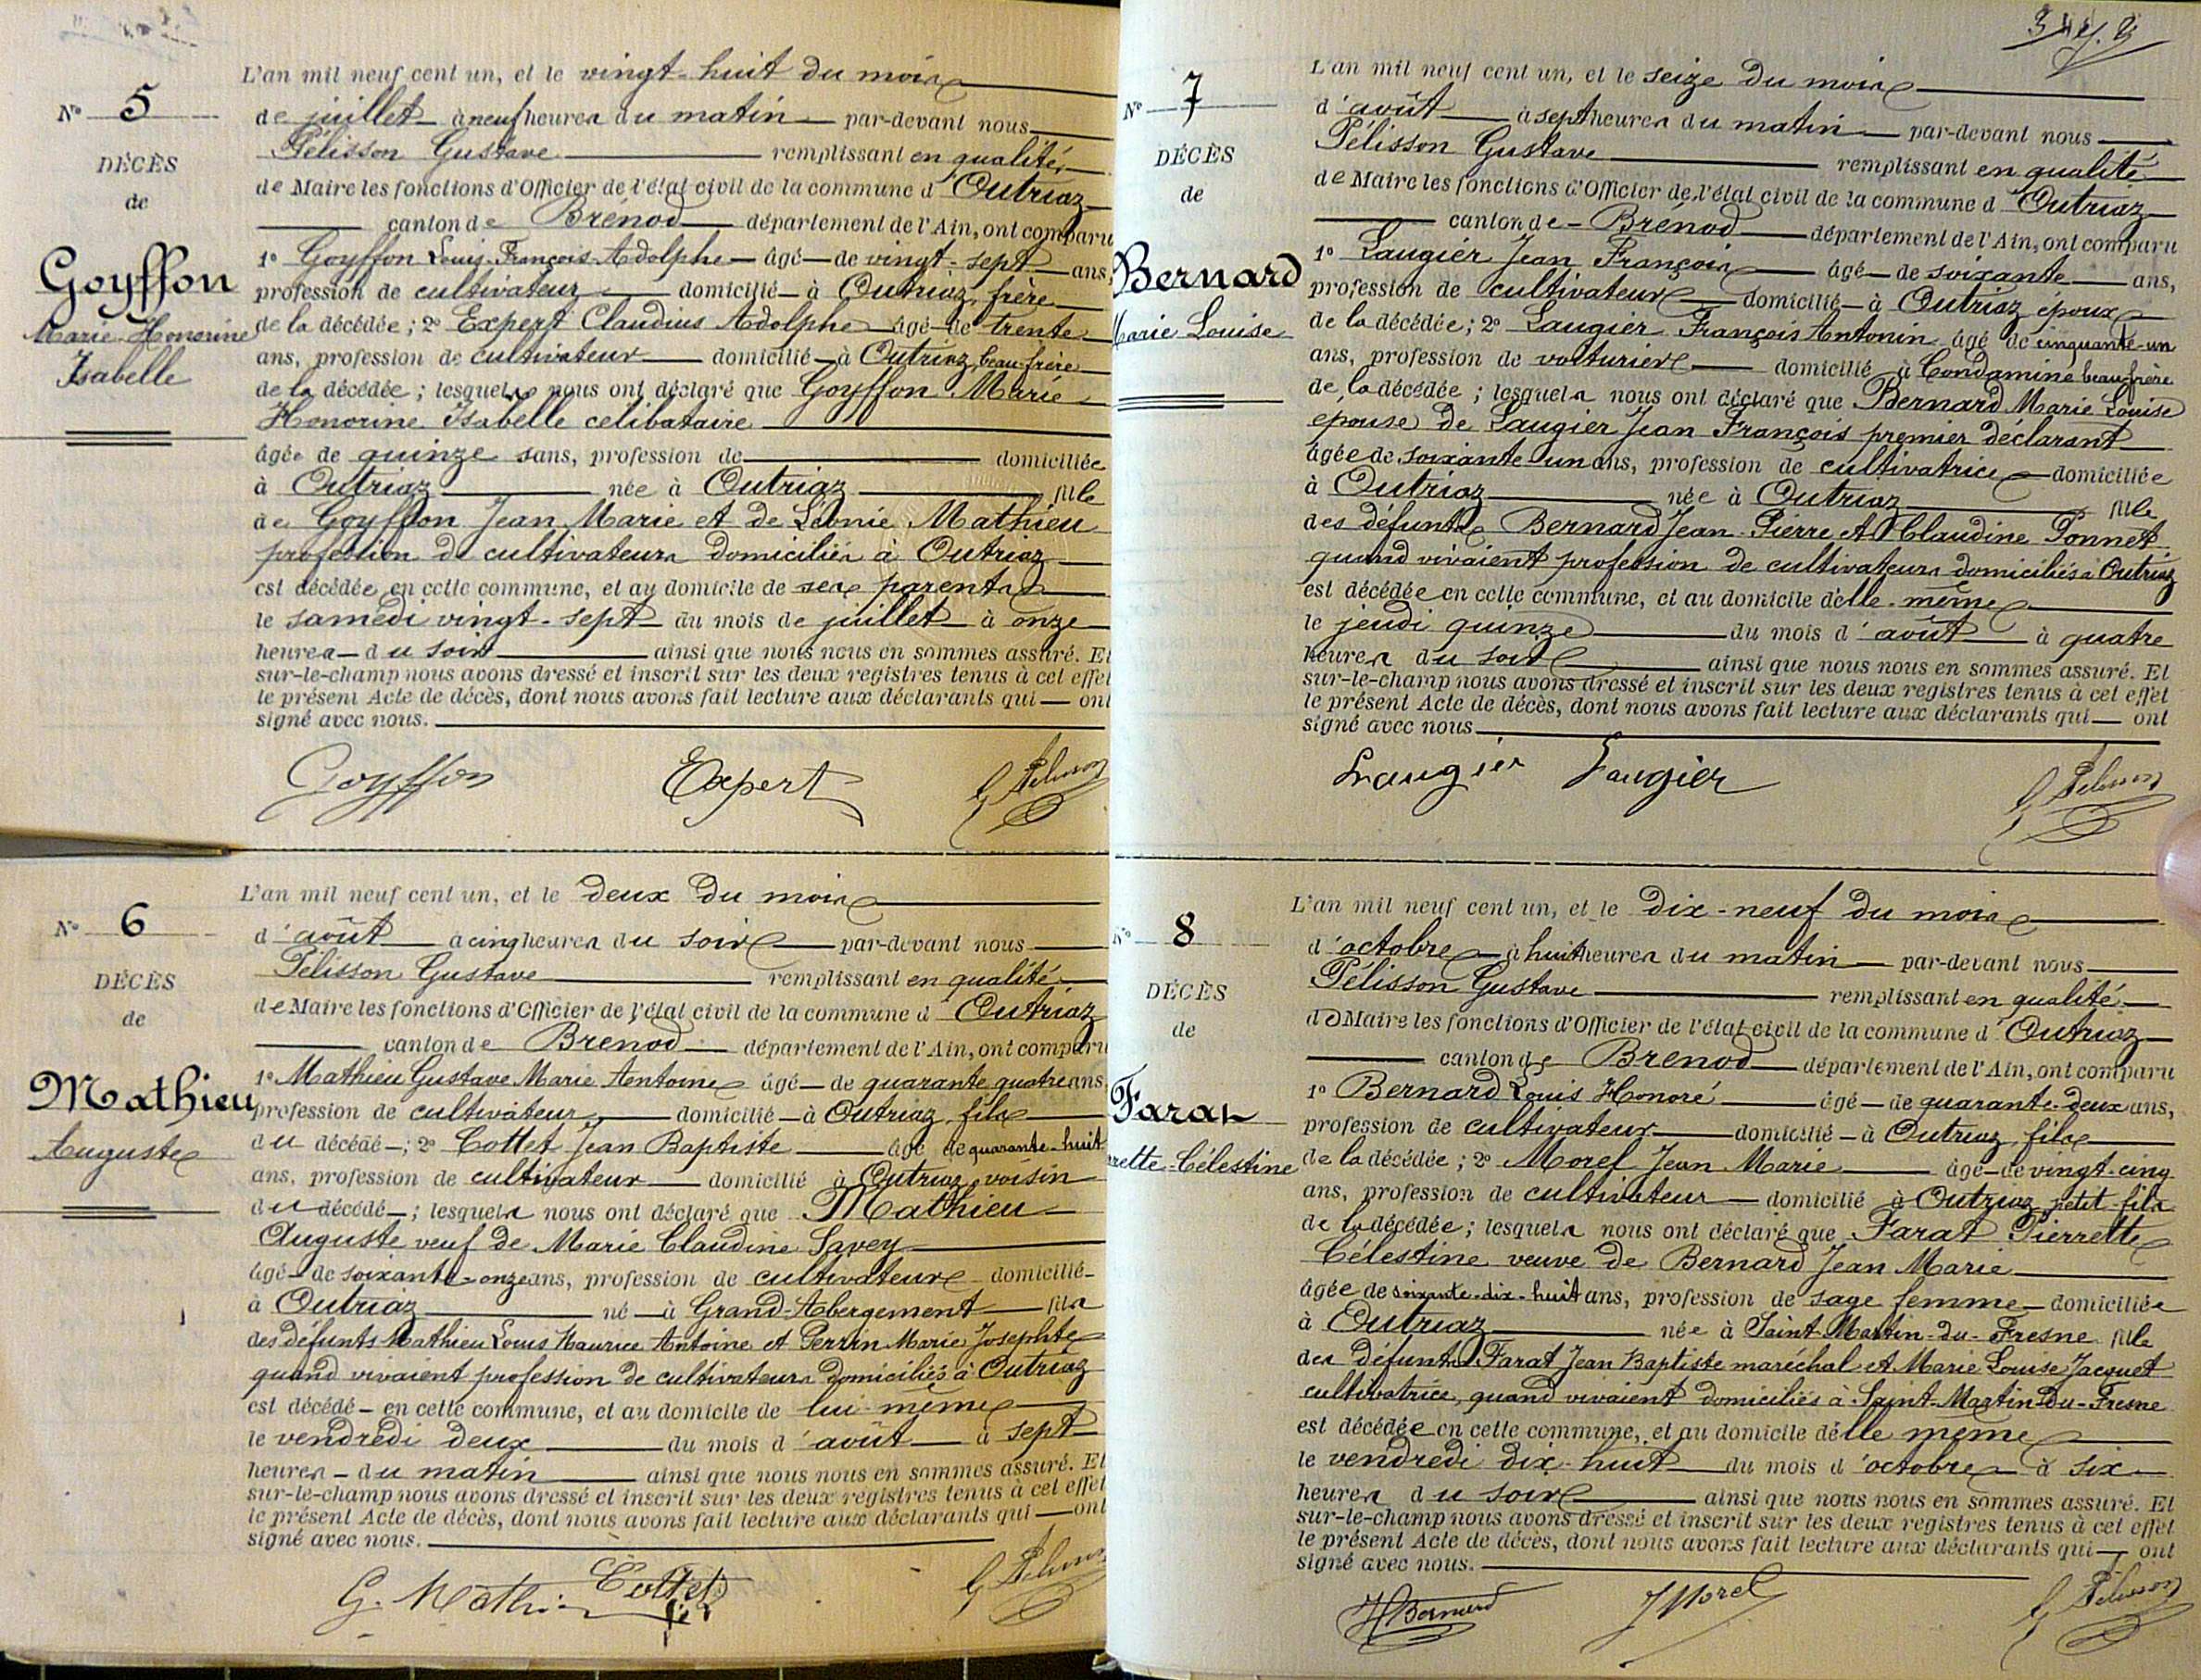 N° 5
DÉCÈS
de
Goyffon
Marie-Honorine
Isabelle
L'an mil neuf cent un, et le vingt-huit du mois
de juillet à neuf heures du matin par-devant nous
Pélisson Gustave remplissant en qualité
de Maire les fonctions d'Officier de l'état civil de la commune d'Outriaz
canton de Brénod département de l'Ain, ont comparu
1° Goyffon Louis François Adolphe âgé de vingt-sept ans,
profession de cultivateur domicilié à Outriaz, frère
de la décédée ; 2° Expert Claudius Adolphe âgé de trente
ans, profession de cultivateur domicilié à Outriaz, beau-frère
de la décédée ; lesquels nous ont déclaré que Goyffon Marie
Honorine Isabelle celibataire
âgée de quinze sans, profession de domiciliée
à Outriaz née à Outriaz fille
de Goyffon Jean Marie et de Léonie Mathieu
profession de cultivateurs domiciliés à Outriaz
est décédée en cette commune, et au domicile de ses parents
le samedi vingt-sept du mois de juillet à onze
heures du soir ainsi que nous nous en sommes assuré. Et
sur-le-champ nous avons dressé et inscrit sur les deux registres tenus à cet effet
le présent Acte de décès, dont nous avons fait lecture aux déclarants qui ont
signé avec nous.
Goyffon Expert G Pelisson
N° 6
DÉCÈS
de
Mathieu
Auguste
L'an mil neuf cent un, et le deux du mois
d'août à cinq heures du soir par-devant nous
Pélisson Gustave remplissant en qualité
de Maire les fonctions d'Officier de l'état civil de la commune d'Outriaz
canton de Brénod département de l'Ain, ont comparu
1° Mathieu Gustave Marie Antoine âgé de quarante quatre ans,
profession de cultivateur domicilié à Outriaz, fils
du décédé ; 2° Cottet Jean Baptiste âgé de quarante-huit
ans, profession de cultivateur domicilié à Outriaz, voisin
du décédé ; lesquels nous ont déclaré que Mathieu
Auguste veuf de Marie Claudine Savey
âgé de soixante-onze ans, profession de cultivateur domicilié
à Outriaz né à Grand-Abergement fils
des défunts Mathieu Louis Maurice Antoine et Perrin Marie Josephte
quand vivaient profession de cultivateurs domiciliés à Outriaz
est décédé en cette commune, et au domicile de lui-même
le vendredi deux du mois d'août à sept
heures du matin ainsi que nous nous en sommes assuré. Et
sur-le-champ nous avons dressé et inscrit sur les deux registres tenus à cet effet
le présent Acte de décès, dont nous avons fait lecture aux déclarants qui ont
signé avec nous.
G. Mathieu Cottet G Pelisson
N° 7
DÉCÈS
de
Bernard
Marie Louise
L'an mil neuf cent un, et le seize du mois
d'août à sept heures du matin par-devant nous
Pélisson Gustave remplissant en qualité
de Maire les fonctions d'Officier de l'état civil de la commune d'Outriaz
canton de Brénod département de l'Ain, ont comparu
1° Laugier Jean François âgé de soixante ans,
profession de cultivateur domicilié à Outriaz époux
de la décédée ; 2° Laugier François Antonin âgé de cinquante-un
ans, profession de voiturier domicilié à Condamine beau-frère
de la décédée ; lesquels nous ont déclaré que Bernard Marie Louise
epouse de Laugier Jean François premier déclarant
âgée de soixante-un ans, profession de cultivatrice domiciliée
à Outriaz née à Outriaz fille
des défunts Bernard Jean-Pierre et Claudine Ponnet
quand vivaient profession de cultivateurs domiciliés à Outriaz
est décédée en cette commune, et au domicile d'elle-même
le jeudi quinze du mois d'août à quatre
heures du soir ainsi que nous nous en sommes assuré. Et
sur-le-champ nous avons dressé et inscrit sur les deux registres tenus à cet effet
le présent Acte de décès, dont nous avons fait lecture aux déclarants qui ont
signé avec nous
Laugier Laugier G Pelisson
N° 8
DÉCÈS
de
Farat
rette-Célestine
L'an mil neuf cent un, et le dix-neuf du mois
d'octobre à huit heures du matin par-devant nous
Pélisson Gustave remplissant en qualité
de Maire les fonctions d'Officier de l'état civil de la commune d'Outriaz
canton de Brénod département de l'Ain, ont comparu
1° Bernard Louis Honoré âgé de quarante-deux ans,
profession de cultivateur domicilié à Outriaz, fils
de la décédée ; 2° Morel Jean Marie âgé de vingt-cinq
ans, profession de cultivateur domicilié à Outriaz petit-fils
de la décédée ; lesquels nous ont déclaré que Farat Pierrette
Célestine veuve de Bernard Jean Marie
âgée de soixante-dix-huit ans, profession de sage femme domiciliée
à Outriaz née à Saint-Martin-du-Fresne fille
des défunts Farat Jean Baptiste maréchal et Marie Louise Jacquet
cultivatrice, quand vivaient domiciliés à Saint-Martin-du-Fresne
est décédée en cette commune, et au domicile d'elle même
le vendredi dix-huit du mois d'octobre à six
heures du soir ainsi que nous nous en sommes assuré. Et
sur-le-champ nous avons dressé et inscrit sur les deux registres tenus à cet effet
le présent Acte de décès, dont nous avons fait lecture aux déclarants qui ont
signé avec nous.
H Bernard J Morel G Pelisson